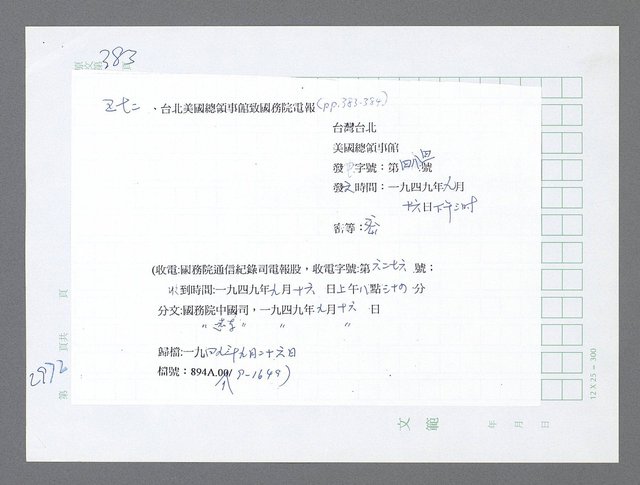 383
五七二、台北美國總領事館致國務院電報(pp.383-384)
台灣台北
美國總領事館
發 字號：第 號
發文時間：一九四九年九月
十六日下午三時
密等：密
(收電:國務院通信紀錄司電報股，收電字號:第六二七六號；
收到時間:一九四九年九月十六日上午八點三十四分
分文：國務院中國司，一九四九年九月十六日
〃 〃 〃 〃
歸檔:一九四九年九月二十六日
檔號：894A.00/9-1649)
2972
第 頁共 頁
12 X 25 = 300
文範
年 月 日